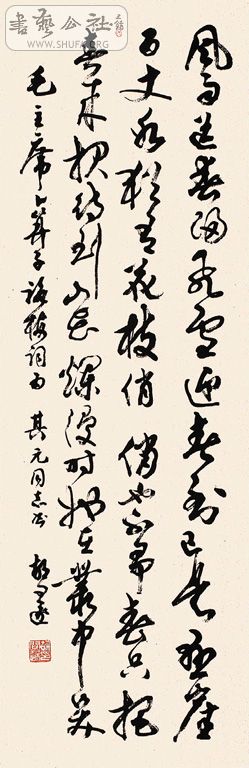 書藝公社
WWW.SHUFA.ORG
風雨送春歸飛雪迎春到已是懸崖
百丈冰猶有花枝俏俏也不爭春只把
春來報待到山花爛漫時她在叢中笑
毛主席卜算子詠梅詞为其元同志书 胡问遂